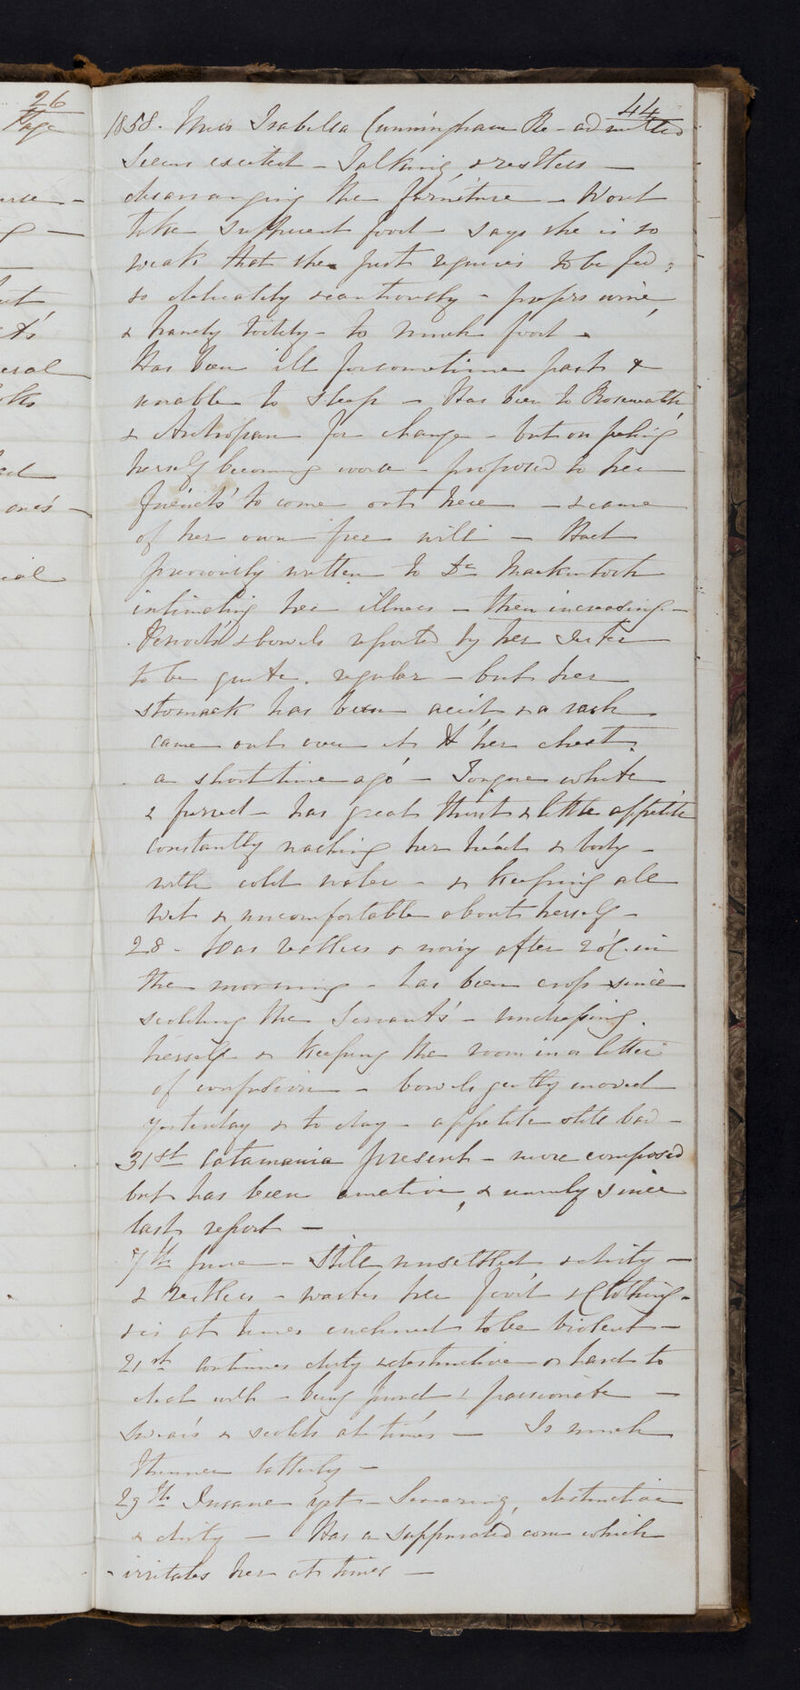 26
Page
44
1858. Miss Isabella Cunningham Re-admitted
Seems excited - Talking & restless -
disarranging the furniture - Wont
take sufficient food - says she is so
weak that she just requires to be fed,
so delicately & cautiously - prefers wine
& brandy toddy - to much food -
Has been ill for sometime past &
unable to sleep - Has been to Roseneath
& Ardrossan for change - but on feeling
herself becoming worse - proposed to her
friends' to come out here - & came
of her own free will - Had
previously written to Dr Mackintosh
intimating her illness - then increasing -
Periods & bowels reported by her Sister
to be quite regular - but her
stomach has been acid & a rash
came out over it & her chest
a short time ago - Tongue white
& furred - has great thirst & little appetite
constantly washing her head & body -
with cold water - & keeping all
wet & uncomfortable about herself -
28 - Was restless & noisy after 2 o'C. in
the morning - has been cross since
scolding the Servants - undressing
herself & keeping the room in a litter
of confusion - bowels gently moved
yesterday & to day - appetite still bad -
31st Catamenia present - more composed
but has been amative, & unruly since
last report -
7th June - Still unsettled & dirty -
& restless - wastes her food & Clothing -
& is at times inclined to be violent -
21st Continues dirty & destructive & hard to
deal with - being proud & passionate -
swears & scolds at times - Is much
thinner latterly -
29th Insane yet - Swearing, destructive
& dirty - Has a suppurated corn which
irritates her at times -